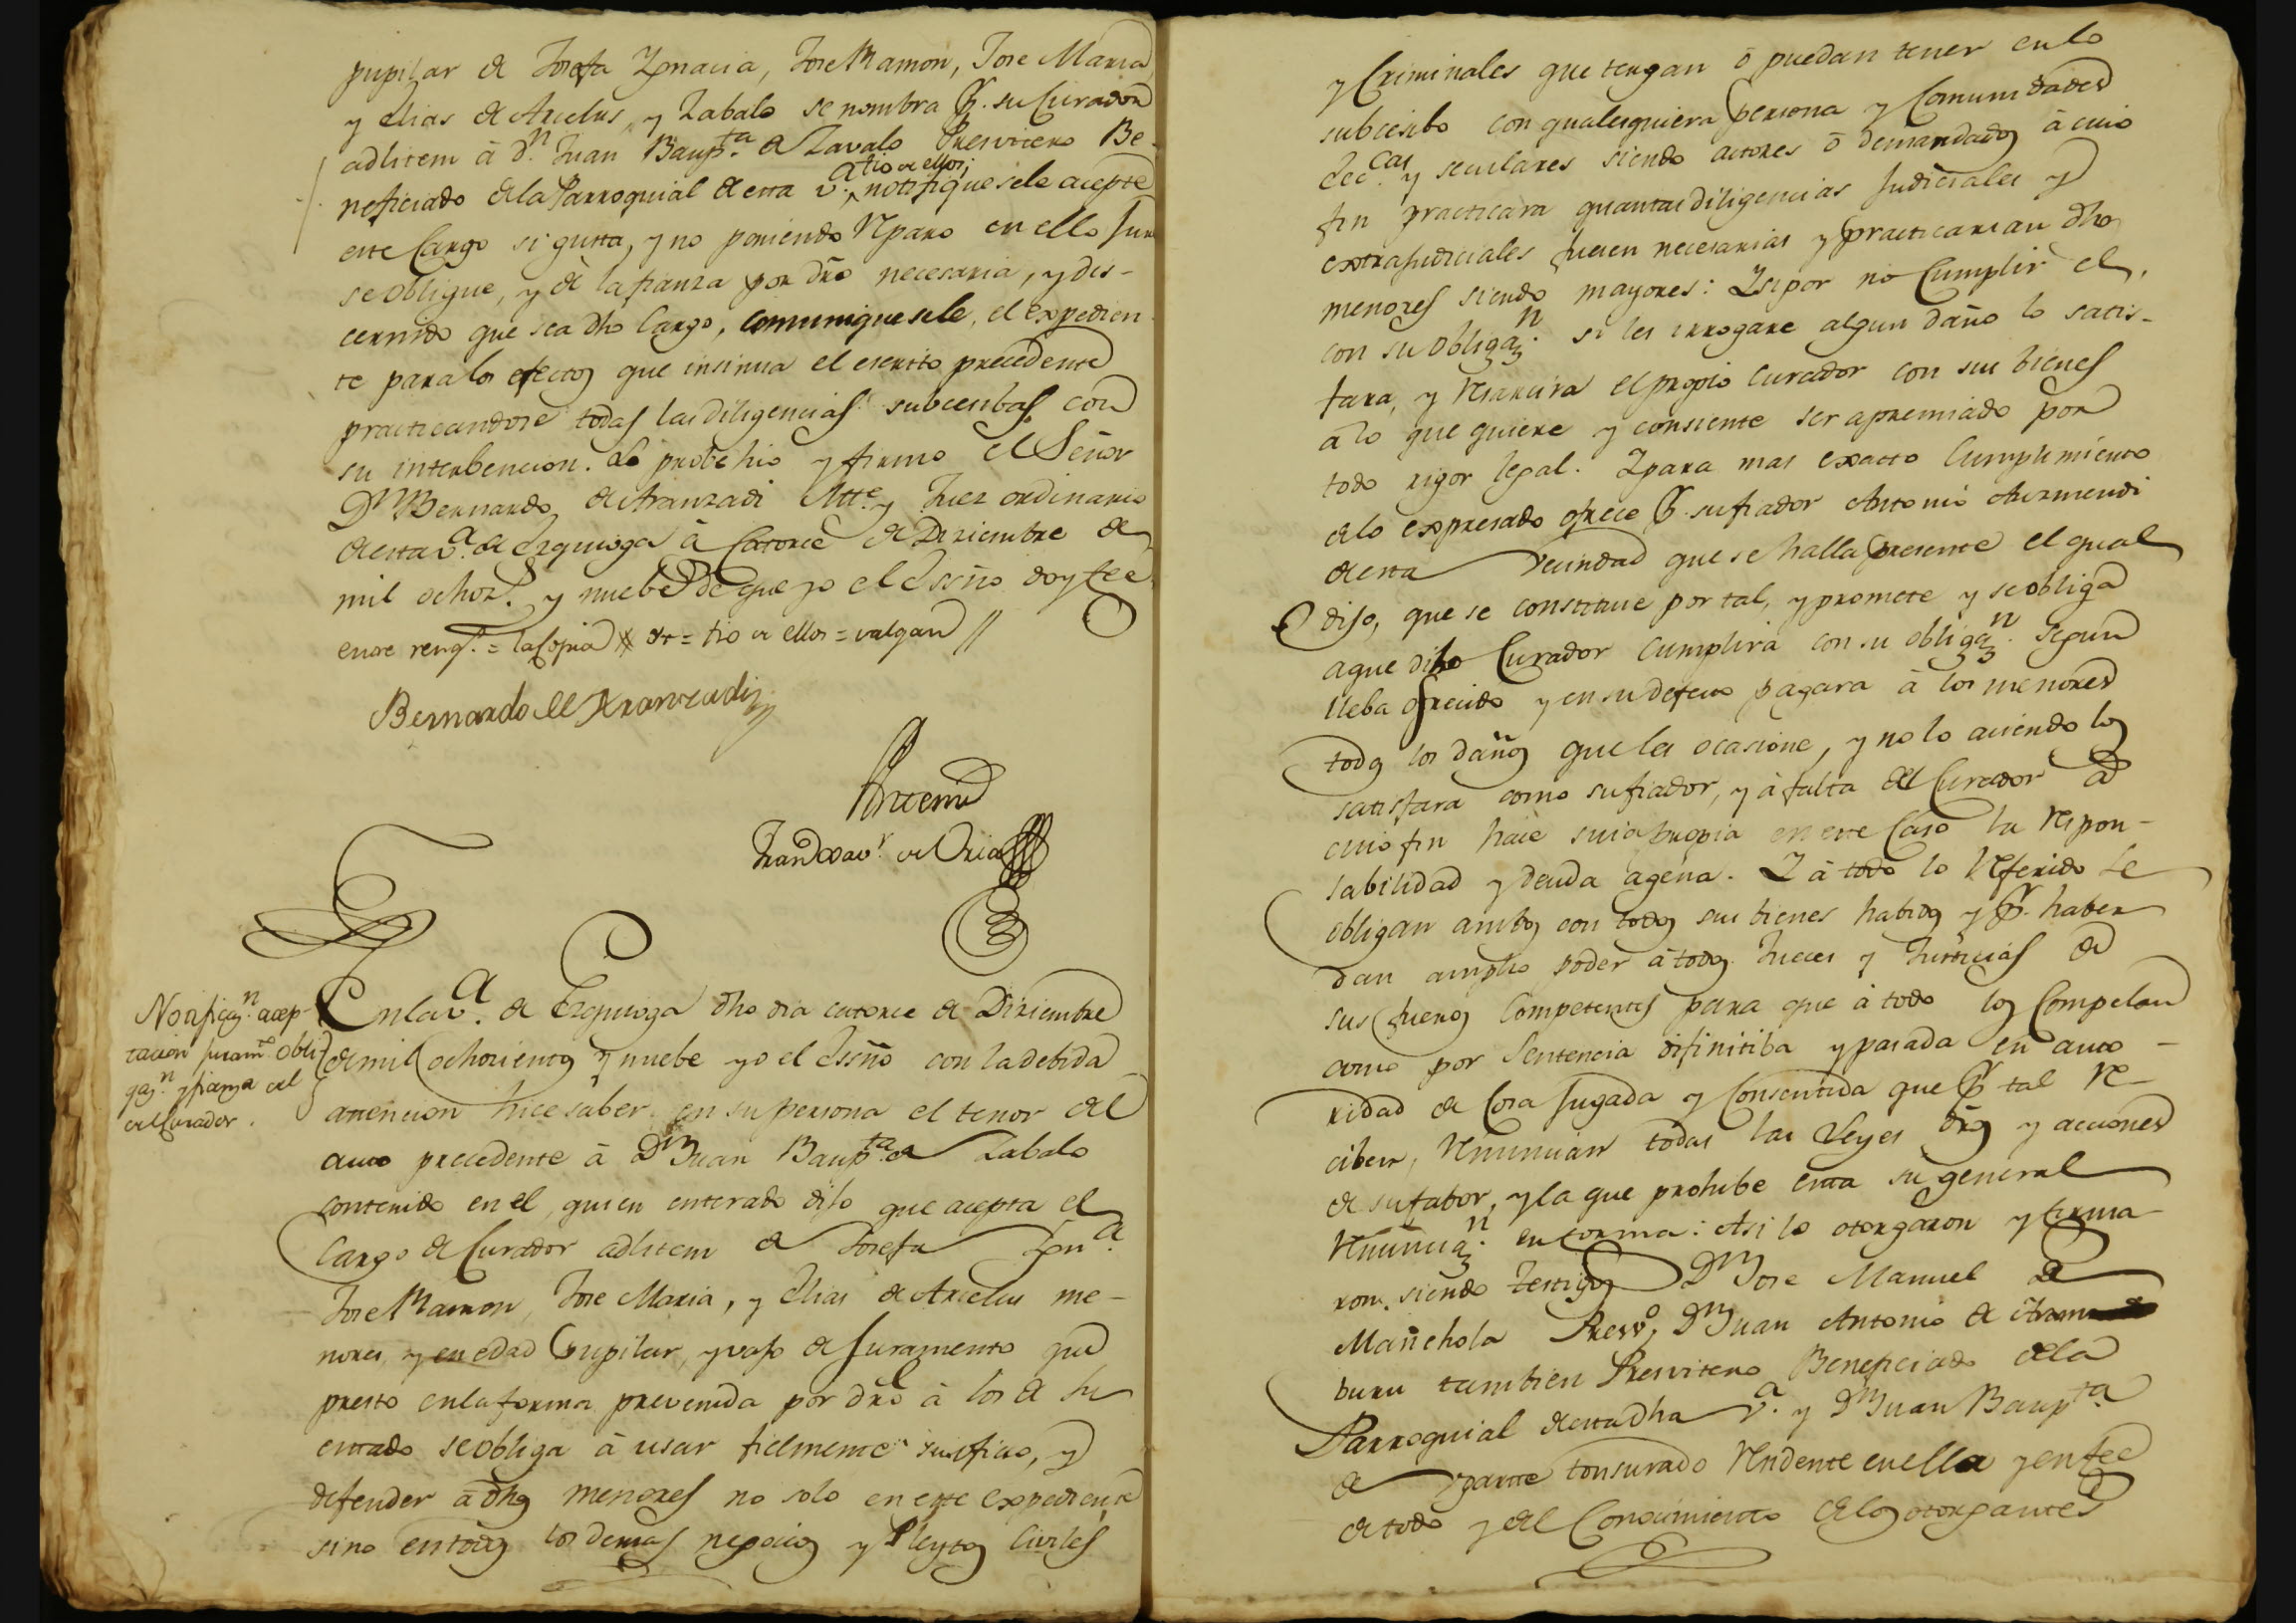 pupilar de Josefa Ygnacia, Jose Ramon, Jose Maria
y Elias de Arcelus, y Zabalo se nombra pr. su Curador
adlitem à Dn. Juan Baupta. de Zavalo Presvitero Be-
tio de ellos;
neficiado de la Parroquial de esta va. notifiquesele acepte
este Cargo si gusta, y no poniendo reparo en ello jure
se obligue, y dè la fianza por dro necesaria, y dis-
cernido que sea dho Cargo, comuniquesele, el expedien
te para los efectos que insinua el escrito precedente
practicandose todas las diligencias subcesibas con
su interbencion. Lo probehio y firmo el Señor
Dn Bernardo de Aranzadi Altte. y Juez ordinario
de esta va. de Ezquioga à Catorce de Diziembre de
mil ochoz.s y nuebe de que yo el Essño doy fee
entre rengs. = la Copia # = tio de ellos = valgan //
Bernardo de Aranzadi
Antemi
Franco Xavr. de Oria
Notificazn. acep-
tacion juramto obli
gazn. y fianza del
del Curador.
En la va. de Ezquioga dho dia catorce de Diziembre
de mil ochozientos y nuebe yo el Essño con la debida
attencion hice saber en su persona el tenor del
auto precedente à Dn Juan Baupta de Zabalo
contenido en el, quien enterado dijo que acepta el
Cargo de Curador adlitem de Josefa Ygna.
Jose Ramon, Jose Maria, y Elias de Arcelus me-
nores, y en edad pupilar, y vajo de Juramento que
presto en la forma prevenida por dro à los de su
estado se obliga à usar fielmente su oficio, y
defender à dhos menores no solo en este expediente
sino en todos los demas negocios y Pleytos Civiles
y Criminales que tengan ò puedan tener en lo
subcesibo con qualesquiera persona y Comunidades
Eccas. y seculares siendo actores ò demandados à cuio
fin practicara quantas diligencias Judiciales y
extrajudiciales fueren necesarias y practicarian dhos
menores siendo mayores: Y si por no Cumplir el
con su obligazn. se les irrogare algun daño lo satis-
fara, y resarcira el propio Curador con sus bienes
à lo que quiere y consiente ser apremiado por
todo rigor legal. Y para mas exacto Cumplimiento
de lo expresado ofrece pr. su fiador Antonio Aurmendi
de esta vecindad que se halla presente el qual
dijo, que se constitue por tal, y promete y se obliga
a que dicho Curador Cumplirà con su obligazn. segun
lleba ofrecido y en su defecto pagara à los menores
todos los daños que les ocasione, y no lo aciendo los
satisfara como su fiador, y à falta del Curador à
cuio fin hace suia propia en este Caso la respon-
sabilidad y deuda agena. Y à todo lo referido se
obligan ambos con todos sus bienes habidos y pr. haber
dan amplio poder à todos Jueces y Justicias de
sus fueros Competentes para que à todo los Compelan
como por Sentencia difinitiba y pasada en auto-
ridad de Cosa Jugada y Consentida que pr tal re-
ciben, renuncian todas las Leyes dros y acciones
de su fabor, y la que prohibe esta su general
renunciazn. en forma: Asi lo otorgaron y firma-
ron, siendo testigos Dn Jose Manuel de
Mañchola Presvo. Dn Juan Antonio de
buru tambien Presvitero Beneficiado de la
Parroquial de esta dha va. y Dn Juan Baupta.
de Ygartte tonsurado residente en ella y en fee
de todo y del Conocimiento de los otorgantes